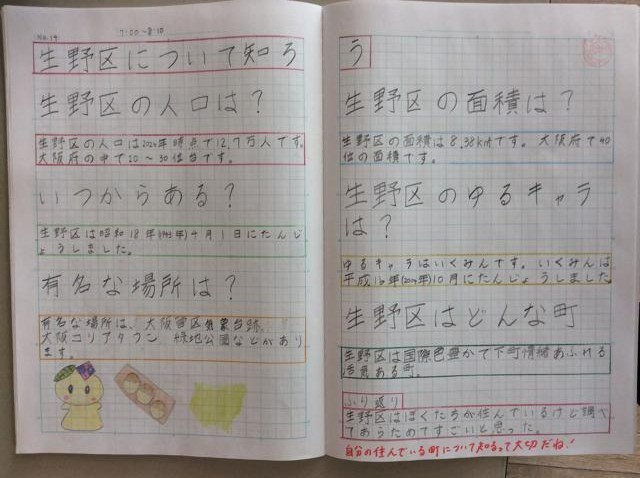 No.14
7:00～8:10
生野区について知ろ
生野区の人口は？
生野区の人口は2020年時点で12.7万人です。
大阪府の中で20～30位台です。
いつからある？
生野区は昭和18年(1943年)4月1日にたんじ
ょうしました。
有名な場所は？
有名な場所は、大阪管区気象台跡、
大阪コリアタウン 緑地公園などがあり
ます。
う
生野区の面積は？
生野区の面積は8.38km²です。大阪府で40
位の面積です。
生野区のゆるキャラ
は？
ゆるキャラはいくみんです。いくみんは
平成16年(2004年)10月にたんじょうしました
生野区はどんな町
生野区は国際色豊かで下町情緒あふれる
活気ある町。
ふり返り
生野区はぼくたちが住んでいるけど調べ
てあらためてすごいと思った。
自分の住んでいる町について知るって大切だね！